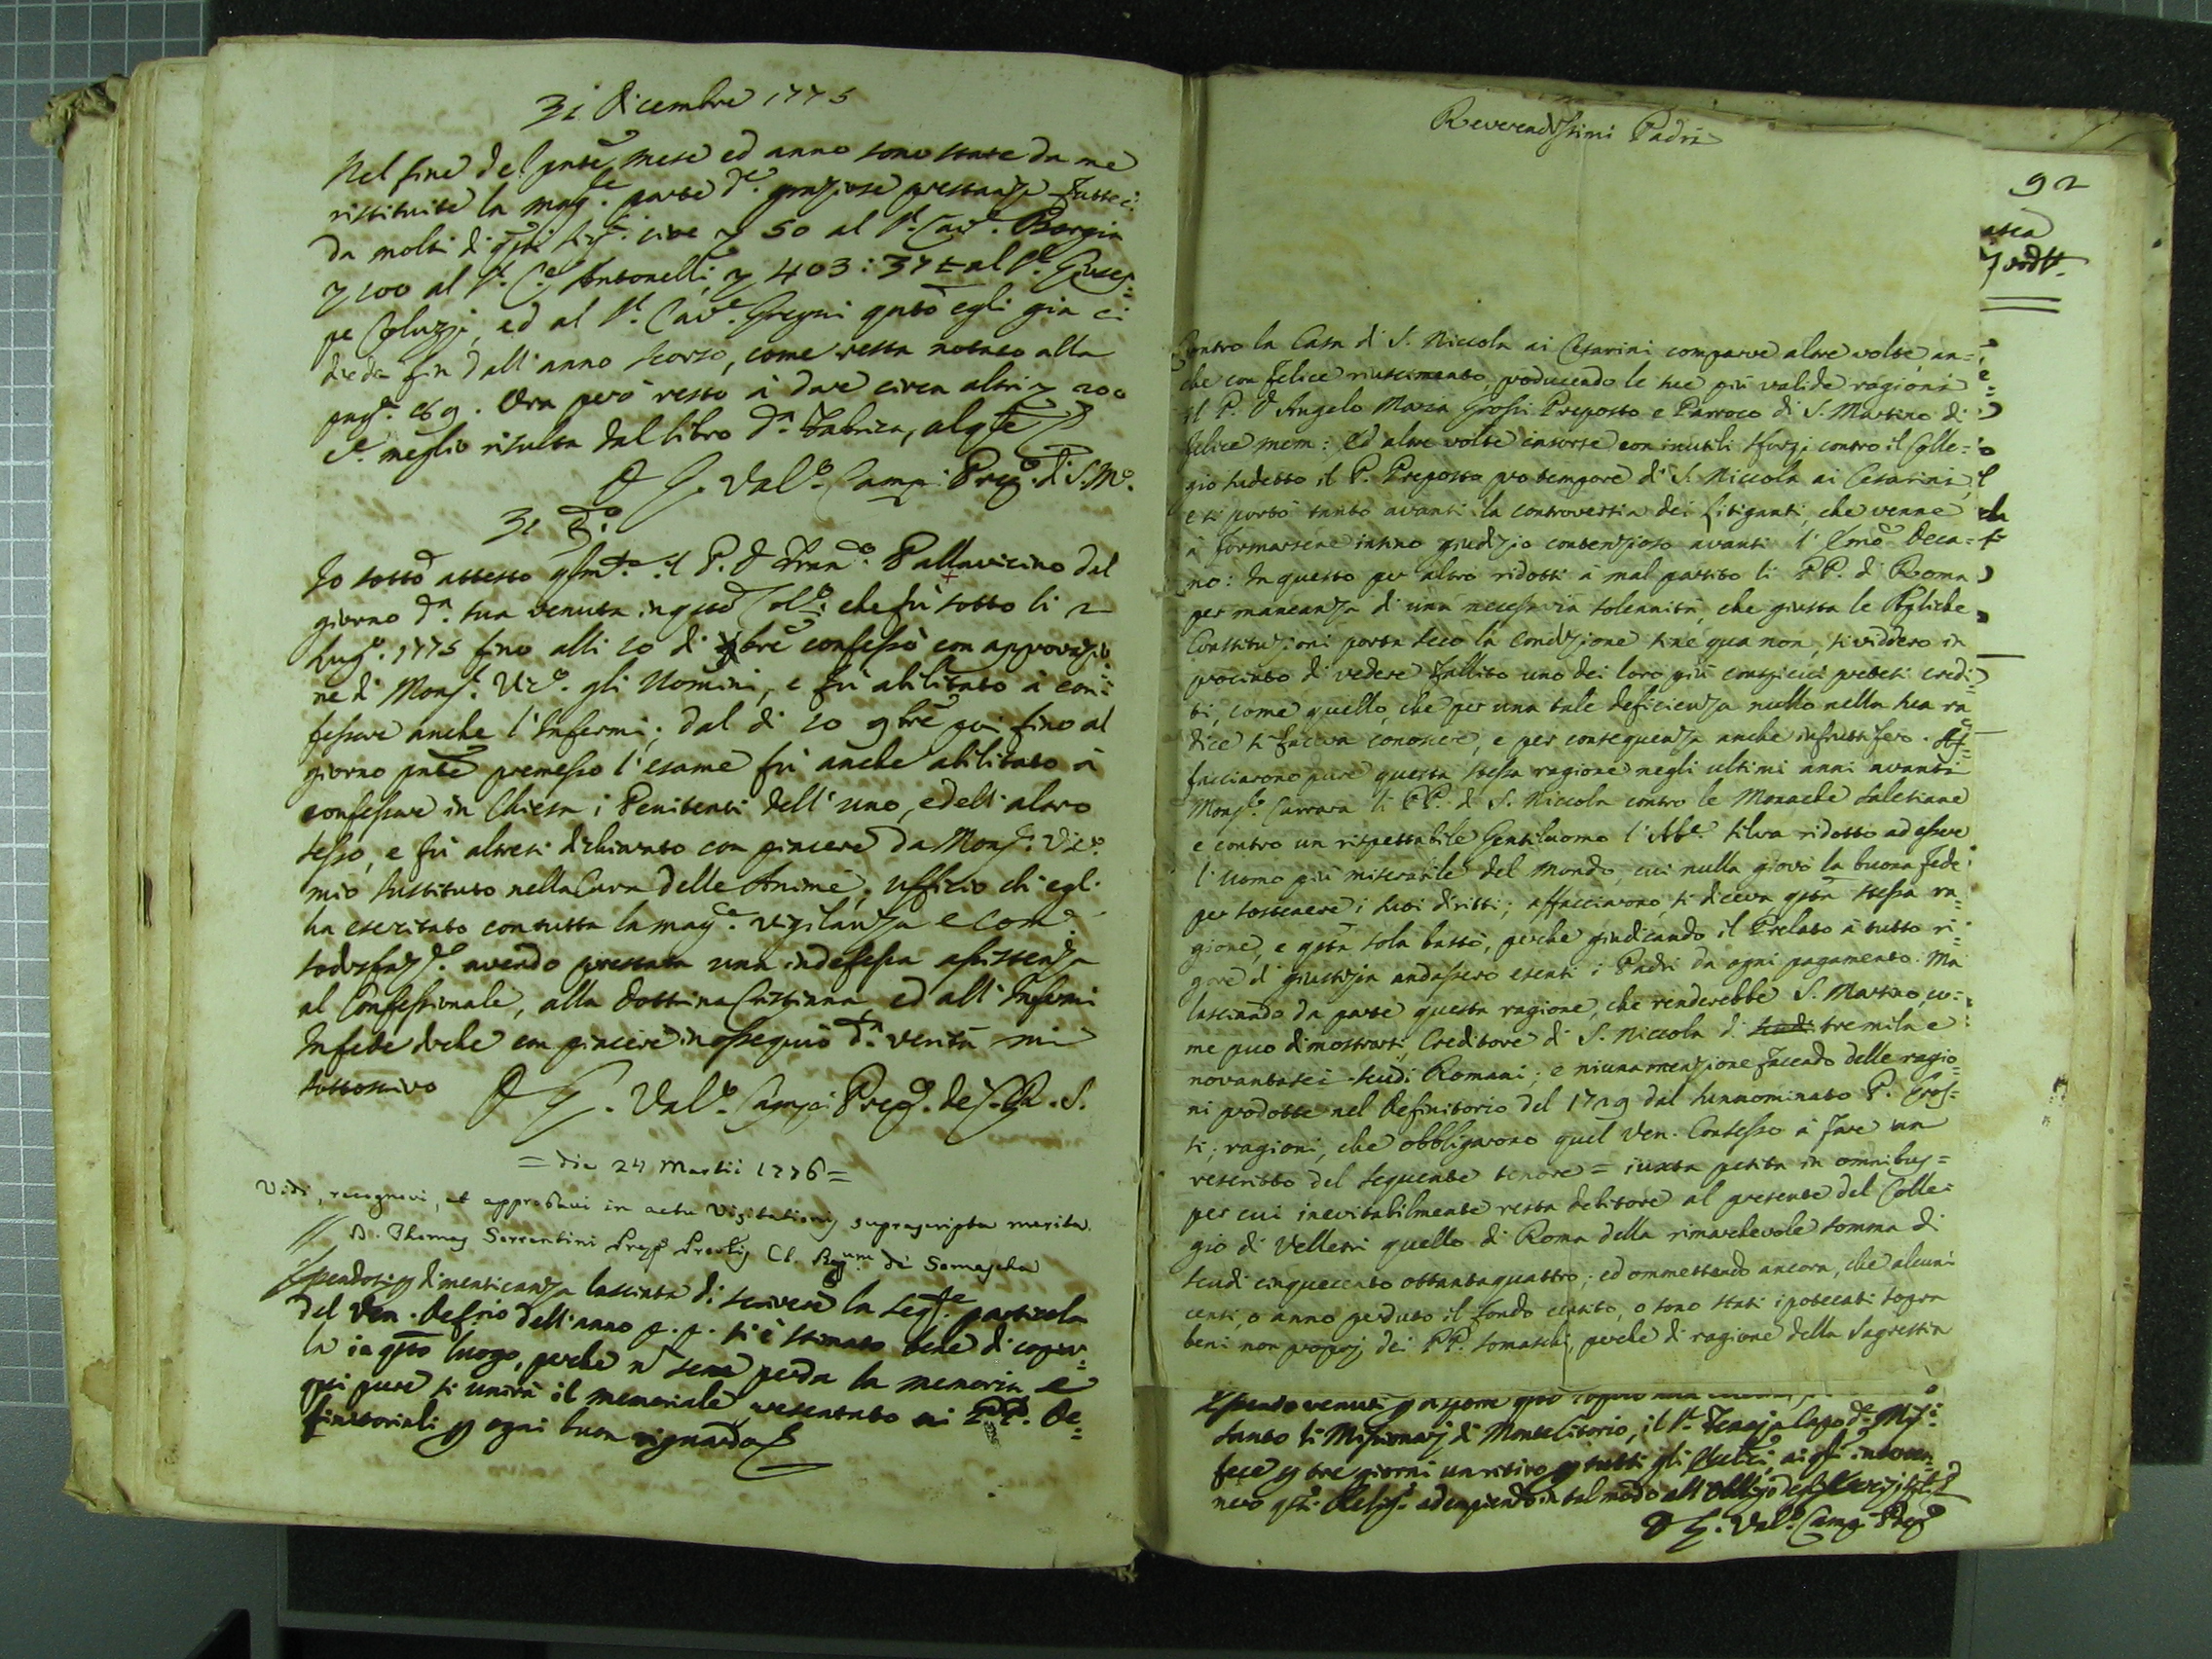 31 Dicembre 1775
Nel fine del pnte mese ed anno sono state da me
ristituite la magre parte de graziose prestanze fatteci
da molti di qsti Sigri cioe 50 al Sr Cavre Borgia
100 al Sr Ce Antonelli, 403:37 al Sr Giusep=
pe Coluzzi, ed al Sr Cave Gregni qnto egli gia ci
diede fin dall'anno scorso, come resta notato alla
pagª 169. Ora però resto à dare circa altri 200
Ce meglio risulta dal libro da Fabrica, al qle
D G. Valo Campi Prepo di S. Mo
31 do
Io sottò attesto qlmte il P. D Franco Pallavicino dal
giorno da sua venuta in qsto Collo che fù sotto li 2
Lugo 1775 fino alli 10 di 9bre confessò con approvazio=
ne di Monsr Vico gli Uomini, e fù abilitato à con=
fessare anche l'Infermi; dal di 10 9bre poi fino al
giorno pnte premesso l'esame fù anche abilitato à
confessare in Chiesa i Penitenti dell'uno, e dell'altro
sesso, e fù altresi dichiarato con piacere da Monsr Vico
mio sustituto nella Cura delle Anime, ufficio ch'egli
ha esercitato con tutta la mage vigilanza e com
sodisfaze avendo prestata una indefessa assistenza
al Confessionale, alla Dottrina Cristiana, ed all'Infermi
In fede di che con piacere in ossequio da verità mi
sottoscrivo D G. Valo Campi Prepo de C. R. S.
= die 24 Martii 1776 =
Vidi, recognovi, et approbavi in actu Visitationis suprascripta merita
D. Thomas Sorrentini Prep Provlis Cl. Regum di Somascha
Essendosi p dimenticanza lasciata di scrivere la segte particola
del Ven. Defrio dell'anno p.p. si è stimato bene di copiar=
la in qsto luogo, perche n se ne perda la memoria e
qui pure si unirà il memoriale presentato ai PP. De=
finitoriali p ogni buon riguardo
Reverendissimi Padri
92
Contro la Casa di S. Niccola ai Cesarini comparve altre volte, an=
che con felice riuscimento, producendo le sue più valide ragioni
il P. D Angelo Maria Grossi Preposto e Parroco di S. Martino di
felice mem: Ed altre volte insorse con inutili sforzi contro il Colle=
gio sudetto il P. Preposto pro tempore di S. Niccola ai Cesarini,
e si portò tanto avanti la controversia dei Litiganti, che venne
à formarsene insino giudizio contenzioso avanti l'Emo Deca=
no: In questo per altro ridotti à mal partito li PP. di Roma
per mancanza di una necessaria solennità, che giusta le Pliche
Constituzioni porta seco la condizione sine qua non, si viddero in
procinto di vedere fallito uno dei loro più conspicui pretesi credi=
ti, come quello, che per una tale deficienza nullo nella sua ra=
dice si faceva conoscere, e per conseguenza anche infruttifero. Af=
facciarono pure questa stessa ragione negli ultimi anni avanti
Monsr Carrara li PP. di S. Niccola contro le Monache Salesiane
e contro un rispettabile Gentiluomo l'Abe Silva ridotto ad essere
l'uomo più miserabile del mondo, cui nulla giovò la buona fede
per sostenere i suoi diritti; affacciarono, si diceva, qsta stessa ra=
gione, e qsta sola bastò, perche giudicando il Prelato à tutto ri=
gore di giustizia andassero esenti i Padri da ogni pagamento. Ma
lasciando da parte questa ragione, che renderebbe S. Martino, co=
me può dimostrarsi, Creditore di S. Niccola di tremila e
novantasei scudi Romani; e niuna menzione facendo delle ragio=
ni prodotte nel Definitorio del 1729 dal sunnominato P. Gros=
si; ragioni, che obbligarono quel Ven. Consesso à fare un
rescritto del seguente tenore = iuxta petita in omnibus =
per cui inevitabilmente resta debitore al presente del Colle=
gio di Velletri quello di Roma della rimarchevole somma di
scudi cinquecento ottantaquattro; ed ommettendo ancora, che alcuni
censi, o anno perduto il fondo censito, o sono stati ipotecati sopra
beni non proprj dei PP. Somaschi, perche di ragione della Sagrestia
Essendo venuti
Santo li Missionarj di Monte Citorio, il Sr capo de Misi
fece p tre giorni un ritiro p tutti gli ai qli interven=
nero qsti Religi adempiendo in tal modo all'obbligo degl'Esercizj
D G. Valo Campi Prepo